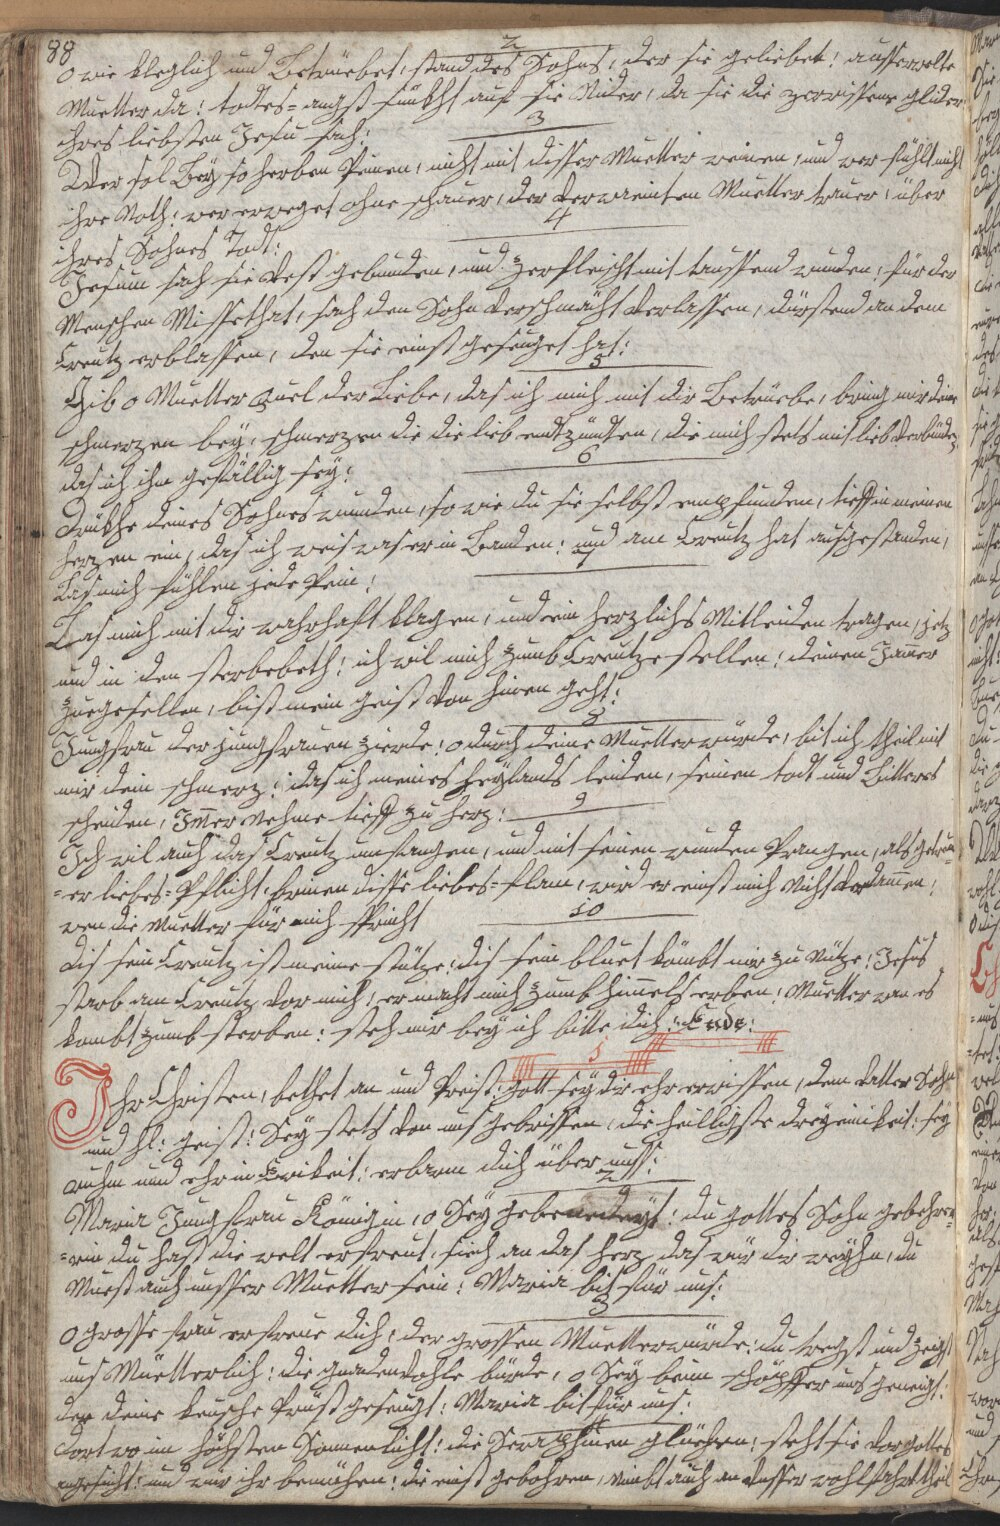 88
2
O wie kleglich und Betrüebet, stand des Sohns, der sie geliebet! ausserwelte
Muetter da! todtes=angst sünkht auf sie Nider, da sie die zerrissene glider
ihres liebsten Jesu sach:
3
Wer sol Bey so herben Peinen, nicht mit disser Muetter weinen, und wer fühlt nicht
ihre Noth: wer erweget ohne schauer, der Verweinten Muetter trauer, über
ihres Sohnes Todt:
4
Jesum sach sie Vest gebunden, und zerfleischt mit taussend wunden, für der
Menschen Missethat, sach den Sohn Verschmächt Verlassen, dürstend an dem
Creutz erblassen, den sie einst geseuget hat:
5
Gib o Muetter Quel der Liebe, das ich mich mit dir Betrüebe, bring mir deine
schmerzen bey, schmerzen die die lieb entzündten, die mich stets mit lieb Verbinden,
das ich ihm gefällig sey:
6
Drükhe deines Sohnes wunden, so wie du sie selbst empfunden, tieff in meinen
herzen ein, das ich weis was er in Banden: und am Creutz hat ausgestanden,
Las mich fühlen jede Pein:
7
Las mich mit dir wahrhaft klagen, und ein herzlichs Mitleiden tragen, jetz
und in den sterbebeth: ich wil mich zumb Creutze stellen: deinen Jamer
zuegesellen, bist mein geist Von hinen geht:
8
Jungfrau der jungfrauen zierde! o durch deine Muetterwürde, bit ich theil mit
mir dein schmerz: das ich meines heylands leiden, seinen todt und Bitteres
scheiden, Imer Nehme tieff zu herz:
9
Ich wil auch das Creutz umfangen, und mit seinen wunden Prangen, als getreu=
=er liebes=Pflicht: Frmen disse liebes=flam, wird er einst mich nicht Verdamen:
wen die Muetter für mich spricht
10
Dis sein Creutz ist meine stütze: dis sein bluet kombt mir zu Nütze: Jesus
starb am Creutz Vor mich: er macht mich zumb himels erben: Muetter wan es
kombt zumb sterben: steh mir bey ich bitte dich: Ende:
1
Ihr Christen, bethet an und Preist: gott sey dir ehr erwissen, dem Vatter Sohn
und hl: geist: Sey stets Von uns gebrissen, die heilligste dreyeinikeit: sey
ruhm und ehr in Ewikeit: erbarm dich über unss:
2
Maria Jungfrau Königin, o Sey gebenedeyt: du gottes Sohn gebehrer=
=rin du hast die welt erfreut, sieh an das herz das wür dir weyhn, du
Muest auch unsser Muetter sein: Maria bit für uns:
3
O grosse frau erfreue dich, der grossen Muetterwürde: du tregst und zeigst
uns Müetterlich: die gnadenVohle bürde, o Sey beim schöpffer uns geneigt:
den deine keusche Prust geseugt: Maria bit für uns:
4
Dort wo im höchsten Sonnenlicht: die Seraphinen glüehen: steht sie Vor gottes
angesicht: und wir ihr bemühen: die einst gebohren, nimbt auch an Unsser wohlfahrt theil